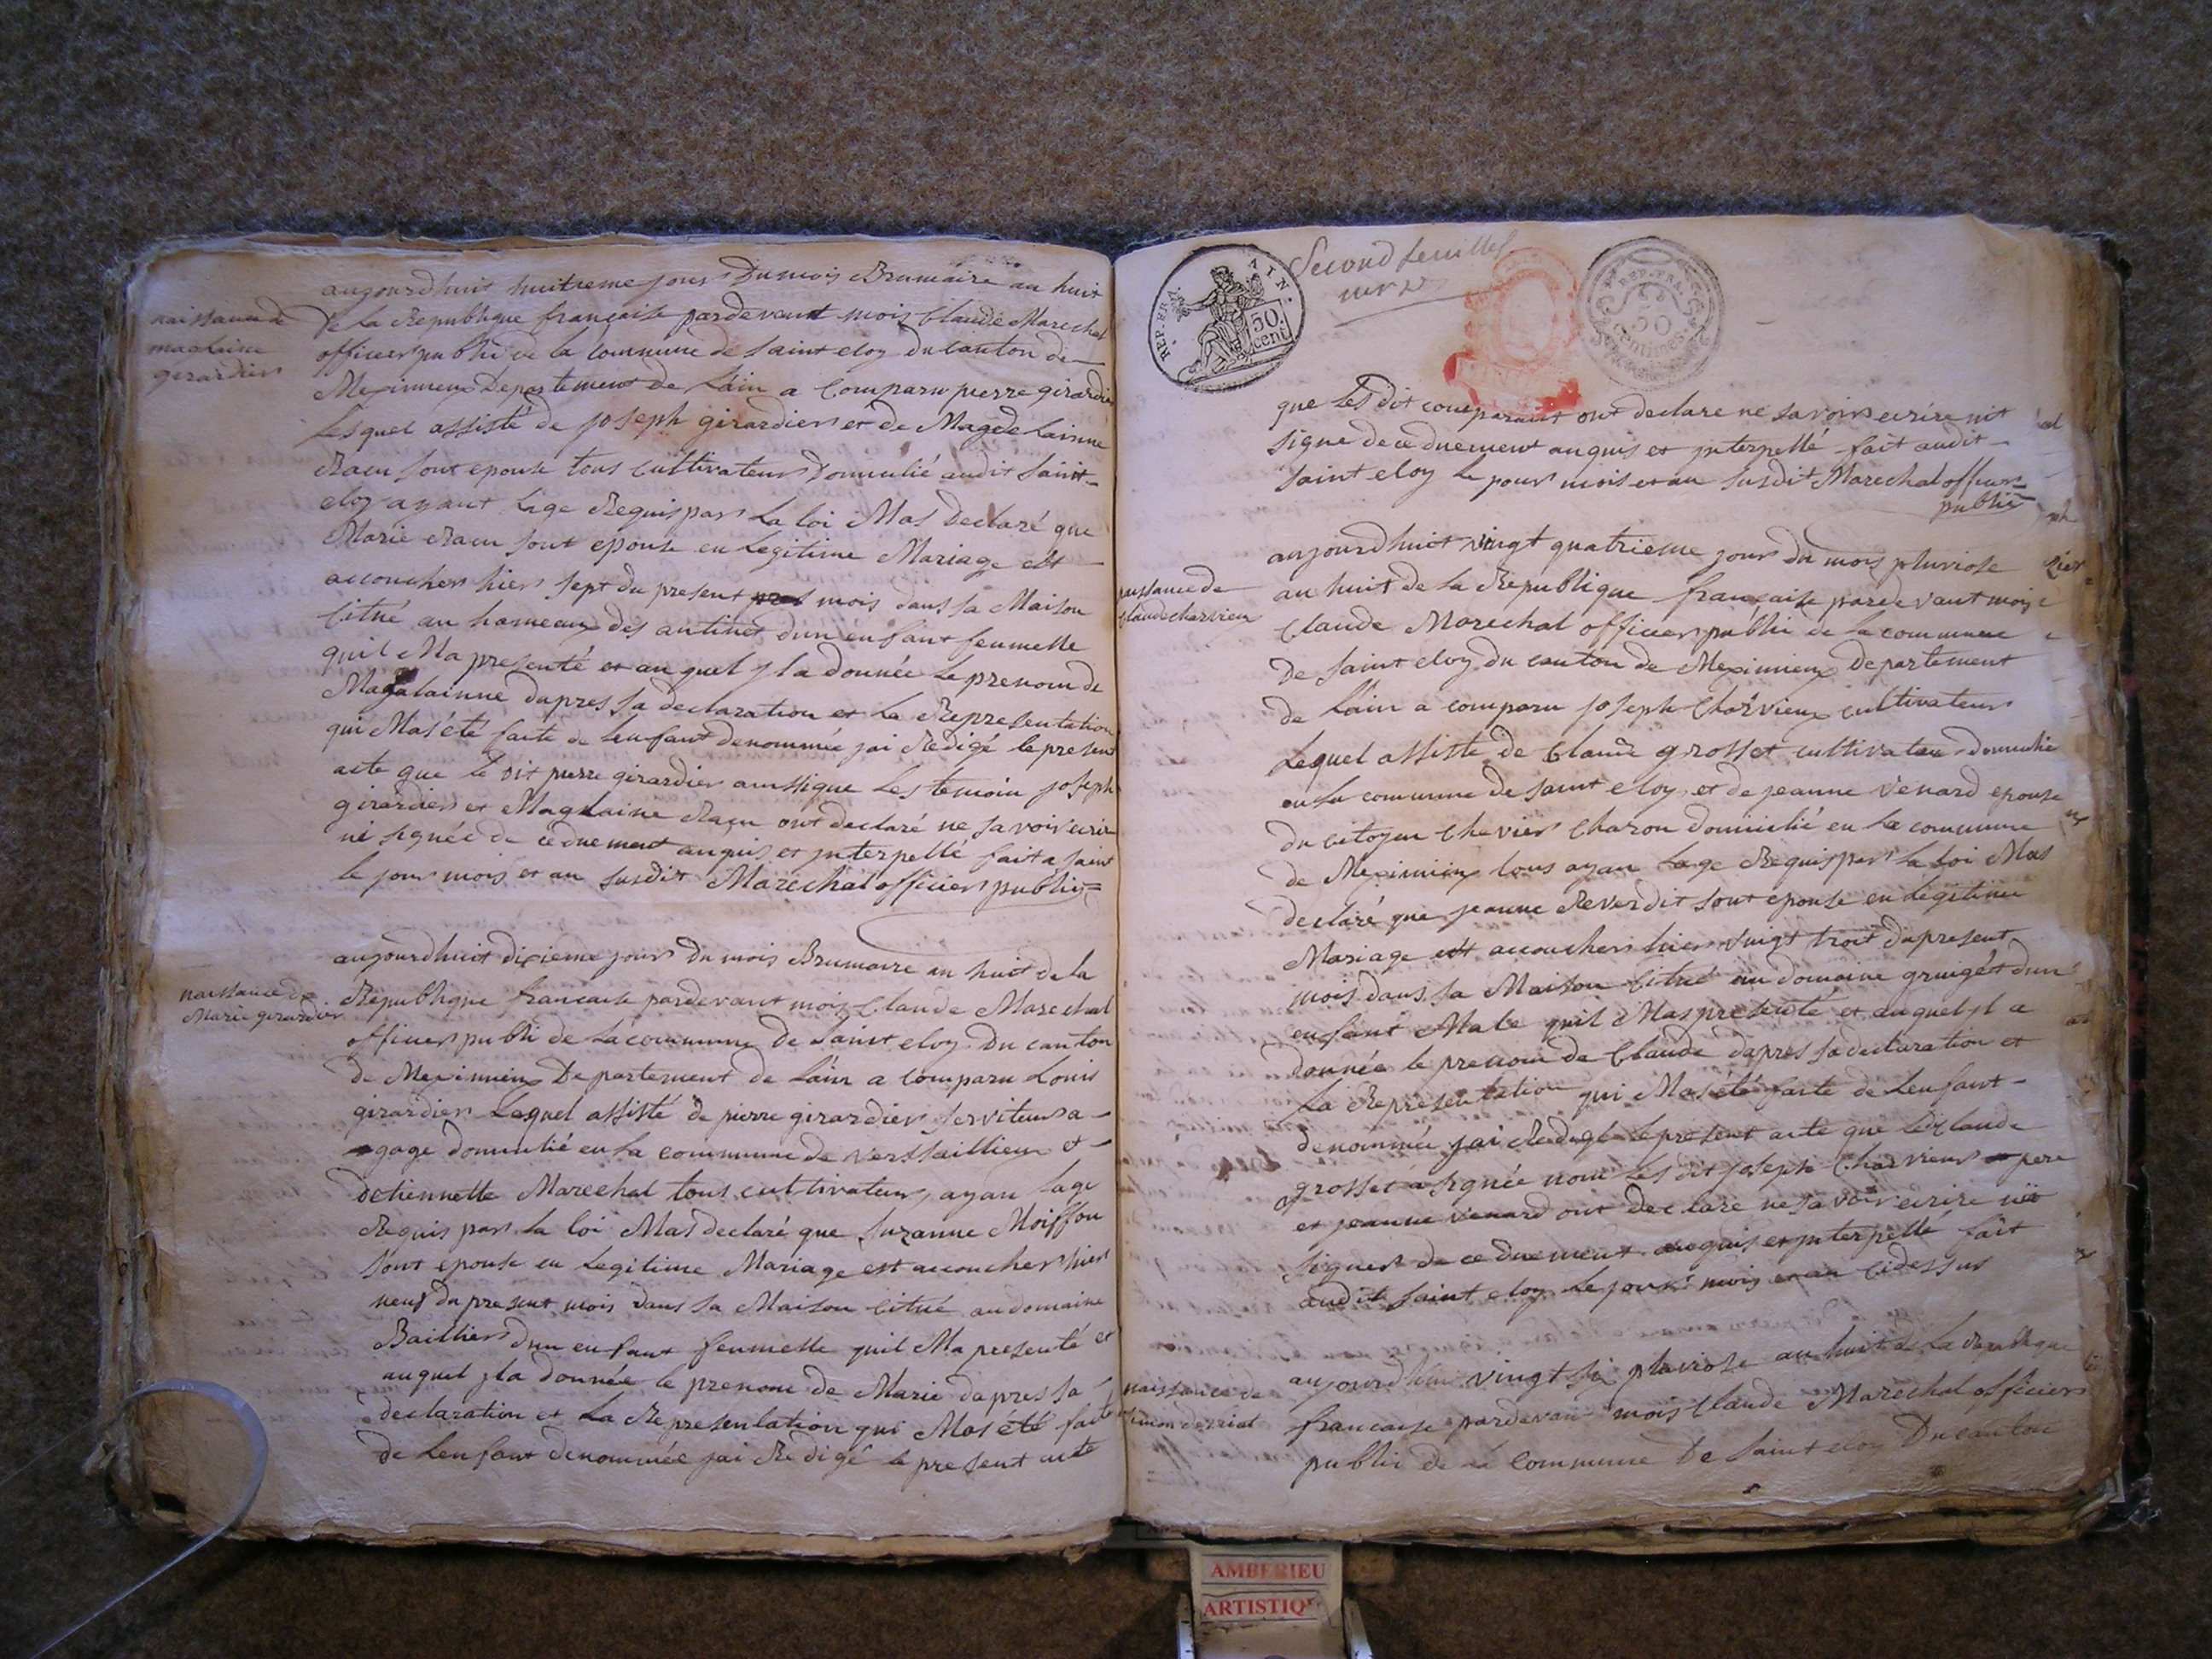 naissance de
magdlaine
girardier
aujourdhuit huitieme jour Du mois Brumaire an huit
de la Republique francaise pardevant mois Claude Marechal
officier publi de la Commune de saint eloy du Canton de
Meximieux Departement de Lain a Comparu pierre girardier
Lesquel assisté de joseph girardier et de Magdelainne
sont epouse tous Cultivateur Domicilié audit saint
eloy ayant Lage Requis par La loi Mas Declaré que
Marie sont epouse en Legitime Mariage est
accoucher hier sept du present mois dans sa Maison
Citué au hameaux des antinet dun enfant feumelle
quil Ma presenté et au quel jl a donnée Le prenom de
Magdalainne dapres sa declaration et La Representation
qui Mas été faite de Lenfant denommée jai Redigé le present
acte que le dit pierre girardier aussique Les temoin joseph
girardier et Magdlaine ont declaré ne savoir ecrire
ni signée de ce duement anquis et jnterpellé fait a saint
le jour mois et an susdit Maréchal officier public
naissance de
Marie girardier
aujourdhuit dixieme jour du mois Brumaire an huit de la
Republique francaise pardevant mois Claude Marechal
officier publi de La commune de Saint eloy Du canton
de Meximieux Departement de Lain a Comparu Louis
girardier Lequel assisté de pierre girardier serviteur a
gage domicilié en la commune de Verssaillieux et
detiennette Marechal tous cultivateur, ayan Lage
Requis par la loi Mas declaré que Suzanne Moiffon
sont epouse en Legitime Mariage est accoucher hier
neuf du present mois dans sa Maison Citué au domaine
Baillier dun enfant feumelle quil Ma presenté et
auquel jl a donnée le prenom de Marie dapres sa
declaration et La Representation qui Mas été faite
de Lenfant denommée jai Redigé le present acte
REP. FRA. AIN.
50
cent
Second feuillet
REP. FRA.
50
Centimes
que Les dit comparant ont declare ne savoir ecrire nit
signe de ce duement anquis et jnterpellé fait audit
saint eloy le jour mois et an susdit Marechal officier
public
naissance de
Claude charvieu
aujourdhuit vingt quatrieme jour du mois pluviose
an huit de la Republique française pardevant mois
Claude Marechal officier publi de la commune
de saint eloy du canton de Meximieux Departement
de Lain a comparu joseph Charvieux cultivateur
Lequel assisté de Claude grosset cultivateur domicilié
en la commune de saint eloy et de jeanne Venard epouse
du citoyen Chevier Charon domicilié en la commune
de Meximieux tous ayan Lage Requis par la loi Mas
declaré que jeanne Reverdit sont epouse en Legitime
Mariage est accoucher hier vingt troit du present
mois dans sa Maison Citué au domaine dun
enfant Male quil Mas presenté et auquel jl a
donnée le prenom de Claude dapres sa declaration et
La Representation qui Mas été faite de Lenfant
denommée jai Redigé le present acte que Le Claude
grosset a signée nom Les dit joseph Charvieux pere
et jeanne Venard ont declare ne savoir ecrire nit
signer de ce duement anquis et jnterpellé fait
audit saint eloy Le jour mois et an cidessus
naissance de
aujourdhui vingt six pluviose an huit de La republique
francaise pardevant mois Claude Marechal officier
publi de la commune De Saint eloy Du canton
AMBERIEU
ARTISTIQ